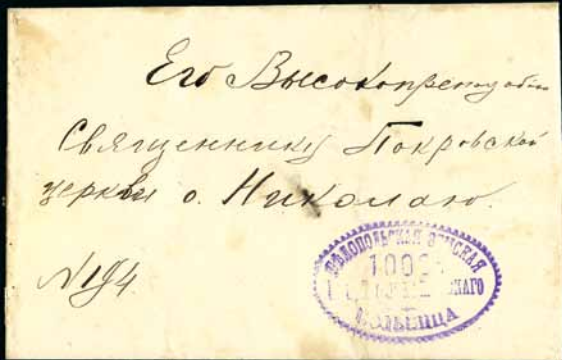 Его Высокопреподобію
Священнику Покровской
церкви о. Николаю.
№194.
БѢЛОПОЛЬСКАЯ ЗЕМСКАЯ
100
БОЛЬНИЦА